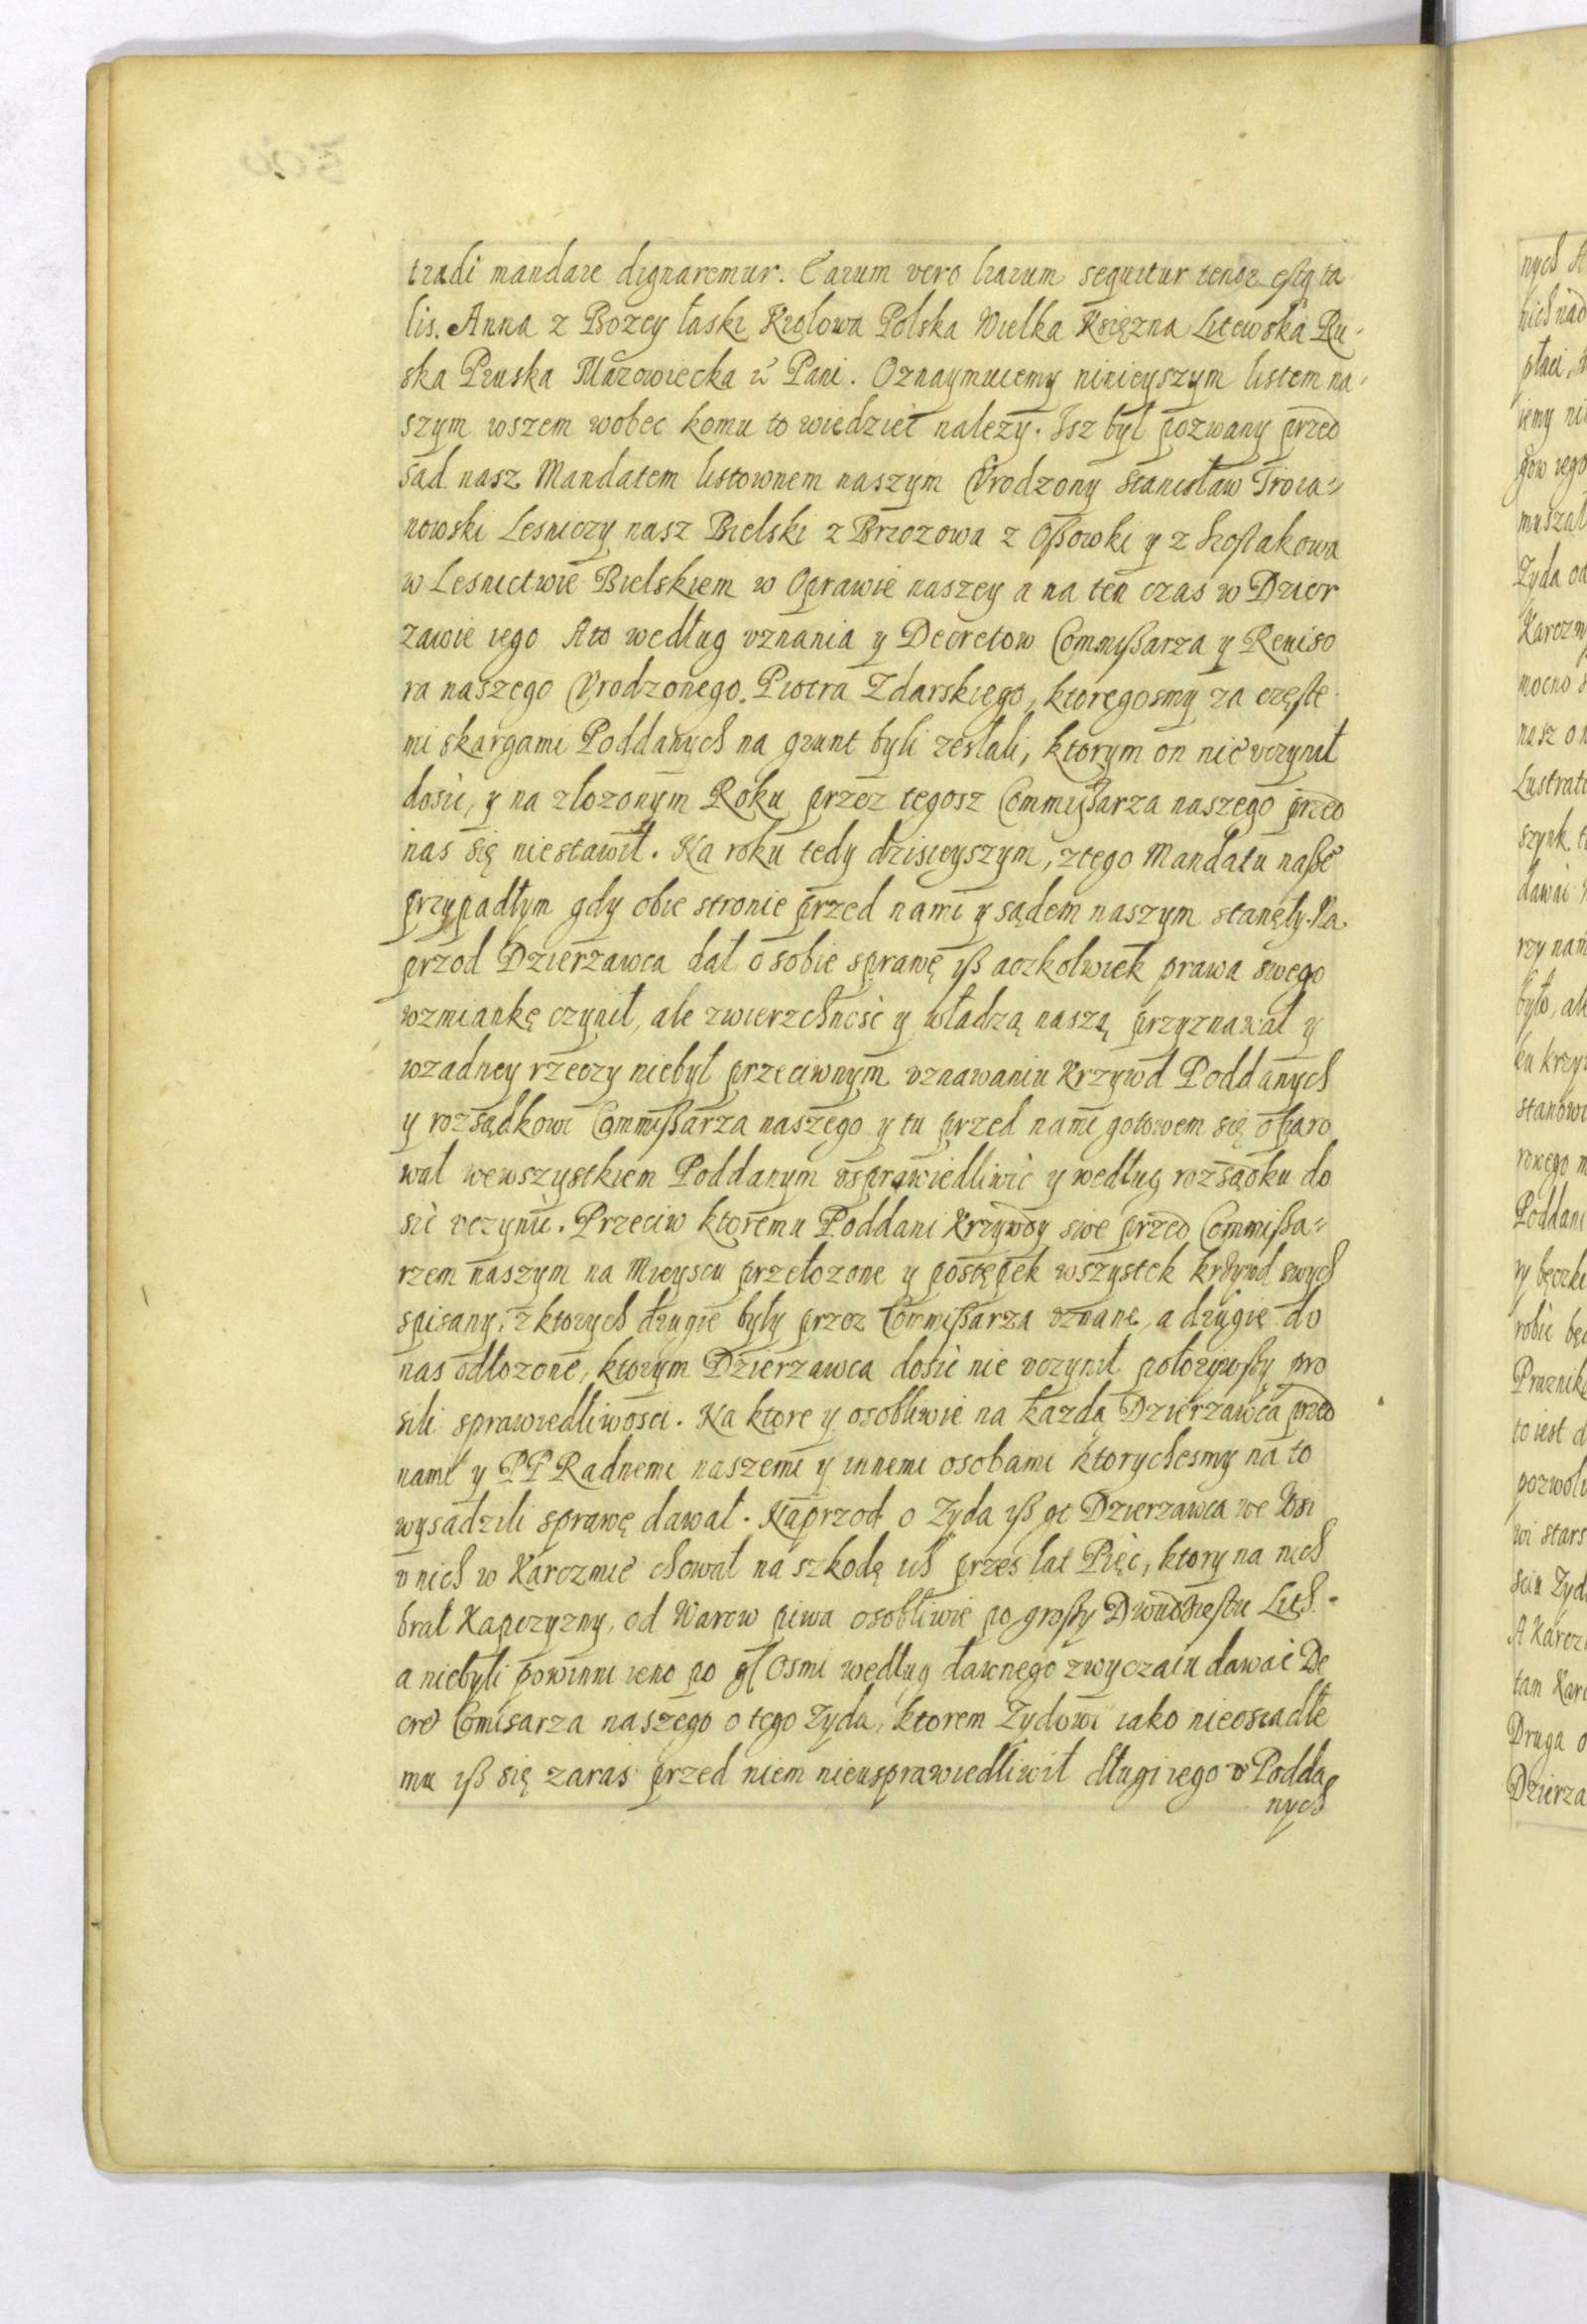 tradi mandare dignaremur. Earum vero lrarum sequitur tenor estq ta
lis. Anna z Bozey łaski Krolowa Polska Wielka Xsięzna Litewska Ru-
ska Pruska Mazowiecka &c Pani. Oznaymuiemy ninieyszym listem na-
szym wszem wobec komu to wiedziec nalezy. Isz był pozwany przed
sąd nasz Mandatem listownem naszym Vrodzony Stanisław Troia-
nowski Lesniczy nasz Bielski z Brzozowa z Ossowki y z Szostakowa
w Lesnictwie Bielskiem w Oprawie naszey a na ten czas w Dzier
zawie iego Ato według vznania y Decretow Commissarza y Reuiso
ra naszego Vrodzonego Piotra Zdarskiego, ktoregosmy za częste
mi skargami Poddanych na grunt byli zesłali, ktorym on nie vczynił
dosic, y na złozonym Roku przez tegosz Commissarza naszego przed
nas się niestawił. Na roku tedy dzisieyszym, z tego Mandatu nasze
przypadłym gdy obie stronie przed nami y sądem naszym stanęły. Na
przod Dzierzawca dał o sobie sprawę iß aczkolwiek prawa swego
wzmiankę czynił, ale zwierzchnosc y władzą naszą przyznawał y
wzadney rzeczy niebył przeciwnym vznawaniu Krzywd Poddanych
y rozsądkowi Commissarza naszego y tu przed nami gotowem się ofiaro
wał wewszystkiem Poddanym vsprawiedliwic y według rozsądku do
sic vczynic. Przeciw ktoremu Poddani Krzywdy swe przed Commissa-
rzem naszym na Mieyscu przełozone y postępek wszystek krzywd swych
spisany, z ktorych drugie były przez Commissarza vznane, a drugie do
nas odłozone, ktorym Dzierzawca dosic nie vczynił połozywszy pro
sili sprawiedliwosci. Na ktore y osobliwie na kazdą Dzierzawca przed
nami y PP Radnemi naszemi y innemi osobami ktorychesmy na to
wysadzili sprawę dawał. Naprzod o Zyda iß go Dzierzawca we Wsi
v nich w Karczmie chował na szkodę ich przes lat Pięc, ktory na nich
brał Kapczyzny, od Warow piwa osobliwie po groszy Dwudziestu Lith.
a niebyli powinni ieno po gl Osmi według dawnego zwyczaiu dawac De
cre Comisarza naszego o tego Zyda, ktorem Zydowi iako nieosiadłe
mu iß się zaras przed niem nieusprawiedliwił długi iego v Podda
nych